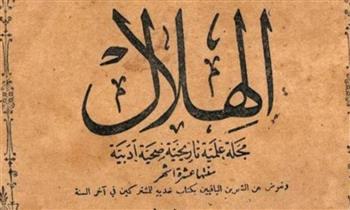 الهلال
مجلة علمية تاريخية صحية أدبية
سنتها عشرة أشهر
وتعوض عن الشهرين الباقيين بكتاب تهديه للمشتركين في آخر السنة